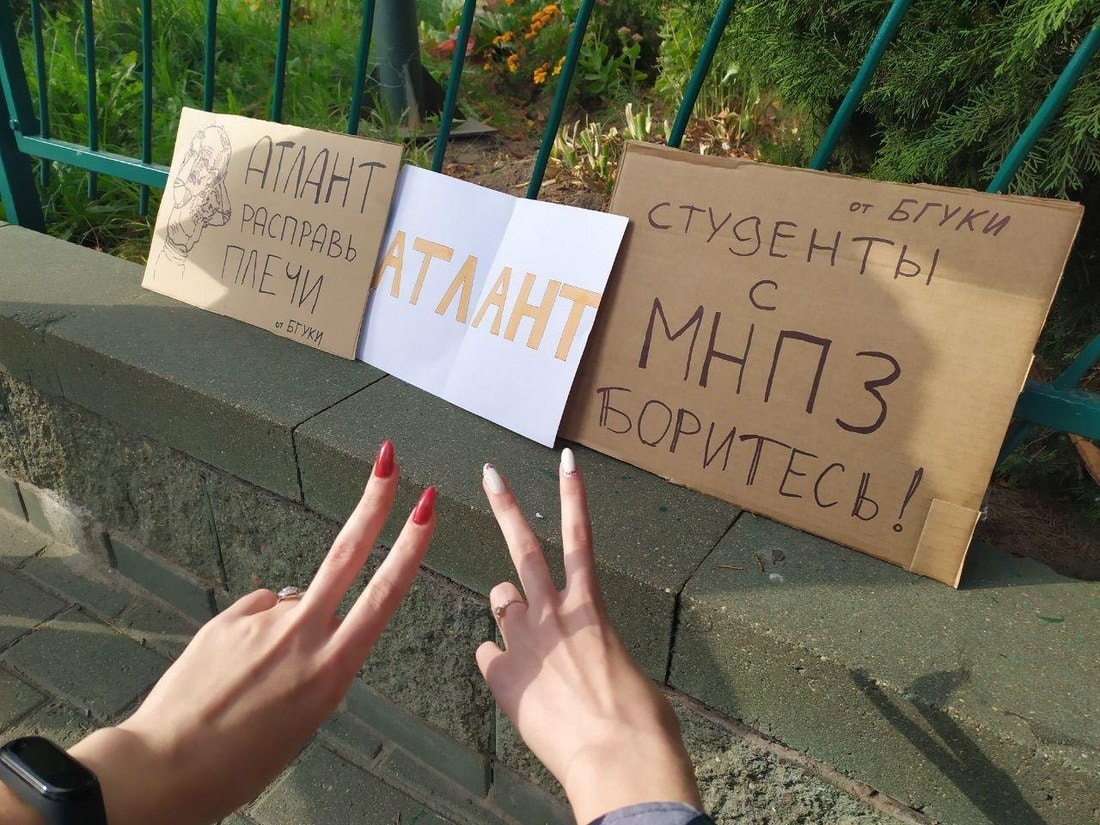 АТЛАНТ
РАСПРАВЬ
ПЛЕЧИ
от БГУКИ
АТЛАНТ
от БГУКИ
СТУДЕНТЫ
С
МНПЗ
БОРИТЕСЬ!